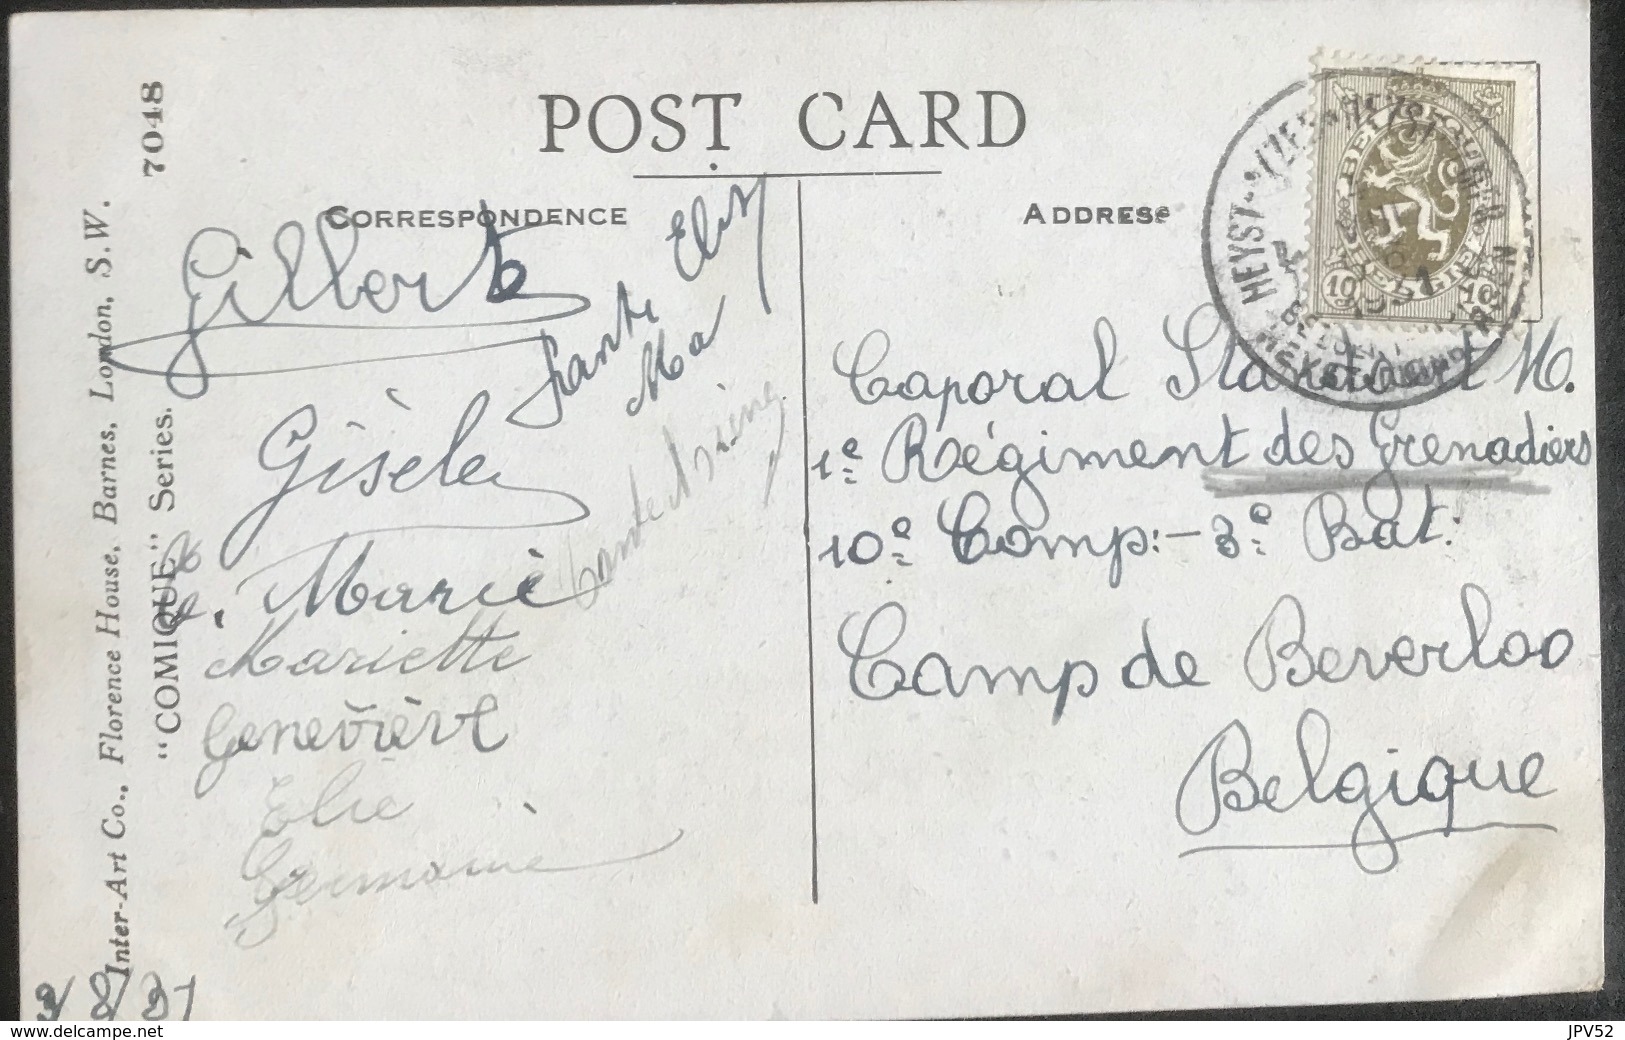 POST CARD
CORRESPONDENCE
ADDRESS
7048
Inter-Art Co., Florence House, Barnes, London, S.W.
"COMIQUE" Series.
Gilbert
Gisèle
Marie
Mariette
Geneviève
Elie
Germaine
Tante
Ma
tante
3/8/31
HEYST
1931
BELGIE
BELGIQUE
10 10
Caporal Standaert M.
1e Régiment des Grenadiers
10e Comp:- 3e Bat:
Camp de Beverloo
Belgique
www.delcampe.net
JPV52